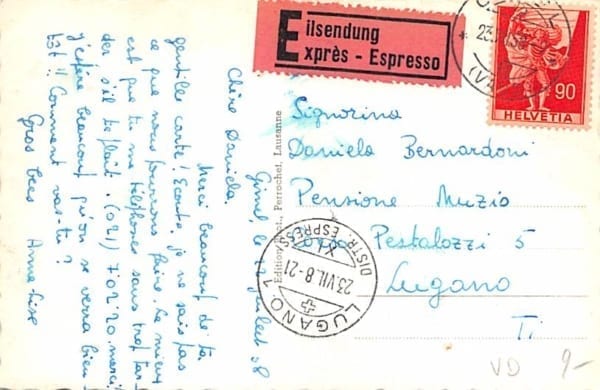 Eilsendung
Exprès - Espresso
90
HELVETIA
Signorina
Daniela Bernardoni
Pensione Muzio
Corso Pestalozzi 5
Lugano
Ti
VD 9-
LUGANO 1
23.VII.8-21
DISTR. ESPRESSI
Perrochet, Lausanne
Gimel, le juillet 58
Chère Daniela,
Merci beaucoup de ta
gentille carte! Ecoute, je ne sais pas
ce que nous pourrons faire. Le mieux
est que tu me téléphones sans trop tar-
der s'il te plaît. (021) 7'02'20. merci
j'espère beaucoup qu'on se verra bien-
tôt!! Comment vas-tu?
Gros becs Anne-Lise